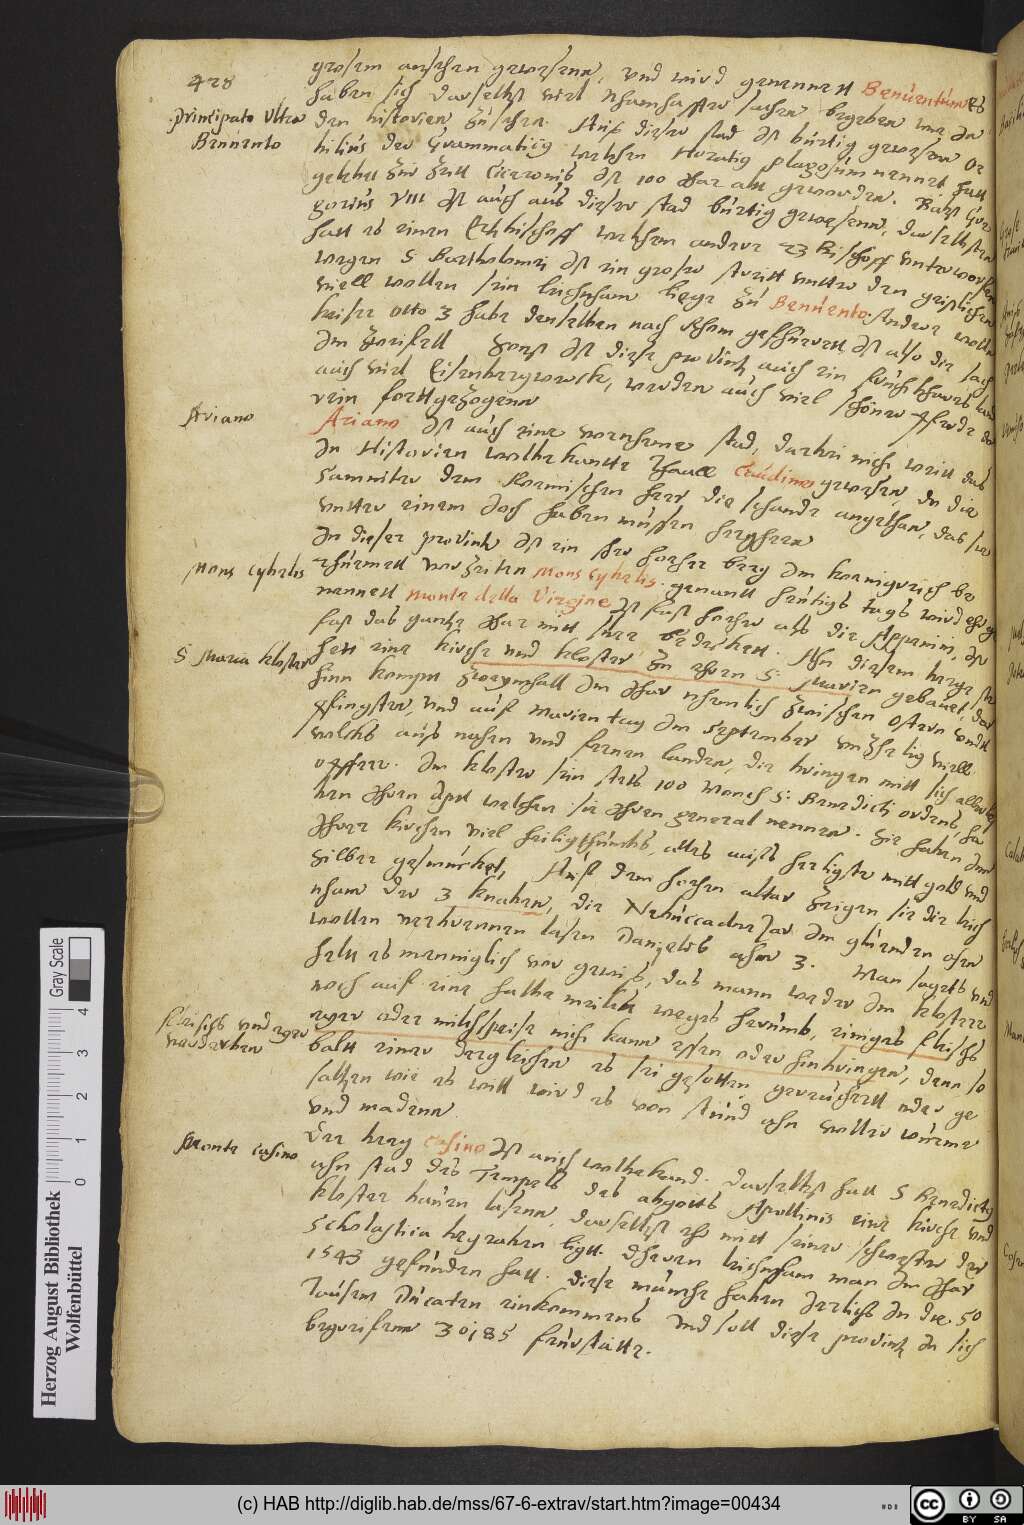 428
grosem ansehen gewesenn, vnd wird genennett Beneuentum es
haben sich daselbst viel nhamhaffter sachen begeben wie in
principato vltra
den historien zusehen. Auß dieser stad ist burtig gewesenn Or
Beneuento
bilius der Grammaticus welchen Horatius plagosum nennet hatt
gelebett zur Zeitt Ciceronis ist 100 Jhar alt geworden. Babst Gre
gorius VIII ist auch aus dieser stad burtig gewesenn, daselbsten
hatt es einen Ertzbischoff welchem andere 23 Bischoff vnterworfen
wegen S Bartholomei ist ein groser streitt vntter den geistlichen
viell wollen sein leichnham liege zu Beneuento. Andere wollen
keiser Otto 3 habe denselben nach Rhom gefhuerett ist also die sach
im Zweifell. Sonst ist diese prouintz auch ein
auch viel Eisenbergwerck, werden auch viel schöner Pferde da
rein fortt gezogenn
Ariano
Ariano ist auch eine vornheme stad, darbei nich weitt das
in Historien wolbekantte Thaall Caudium gewesen, da die
Samniter dem Roemischen heer die schande angethan, das sie
vntter einem Joch haben müssen hergehenn
In dieser prouintz ist ein sher hocher berg im koenigreich be
Mons Cybelis
rhümett vorzeiten Mons Cybelis genantt heutigs tags wird ehr ge
nennett Monte della Virgine ist fast hocher als die Appenini, ist
fast das gantze Jhar mitt snee bedeckett. An diesem berge ste
S Maria kloster
hett eine kirche vnd kloster zu ehren S: Marien gebauet, da
hinn kompt Zweymhall im Jhar nhemlich zwischen Ostern vndtt
Pfingsten, vnd auf Marien tag im September vnzhelig viell
volcks aus nahen vnd fernen landen, die bringen mitt sich allerley
opffer. Im kloster sein stets 100 Monch S: Benedicti ordens, ha
ben Ihren Aptt welchen sie Ihren general nennen. Sie haben inn
Ihrer kirchen viel heiligthumbs, alles aufs herligste mitt gold vnd
silber geschmücket, Auf dem hochen altar zeigen sie die leich
nham der 3 knaben, die Nebuccadnezar im gluenden ofen
wollen verbrennen lasen Danielis ahm 3. Man sagts vnd
heltt es menniglich vor gewis, das mann weder im kloster
noch auf eine halbe meilen weges herumb, einiges fleischs
fleischs vnd eyer
eyer oder milchspeise nich kann essen oder hinbringen, denn so
verderben
baltt einer dergleichen es sei gesotten, gereuchertt oder ge
saltzen wie es will wird es von stund ahn voller würme
vnd madenn.
Monte Casino
Der berg Casino ist auch wolbekand. Daselbst hatt S Benedictus
ahn stad des Tempels des abgotts Apollinis eine kirche vnd
kloster bauen lasenn, daselbst ehr mitt seiner schwester der
Scholastica begraben ligtt. Deren leichnham man im Jhar
1543 gefunden hatt. Diese münche haben Jerlichs in die 50
tausent Ducaten einkommens vnd soll diese prouintz in sich
begreifenn 30185 feurstätte.
Herzog August Bibliothek
Wolfenbüttel
0 1 2 3 4
Gray Scale
(c) HAB http://diglib.hab.de/mss/67-6-extrav/start.htm?image=00434
cc BY SA